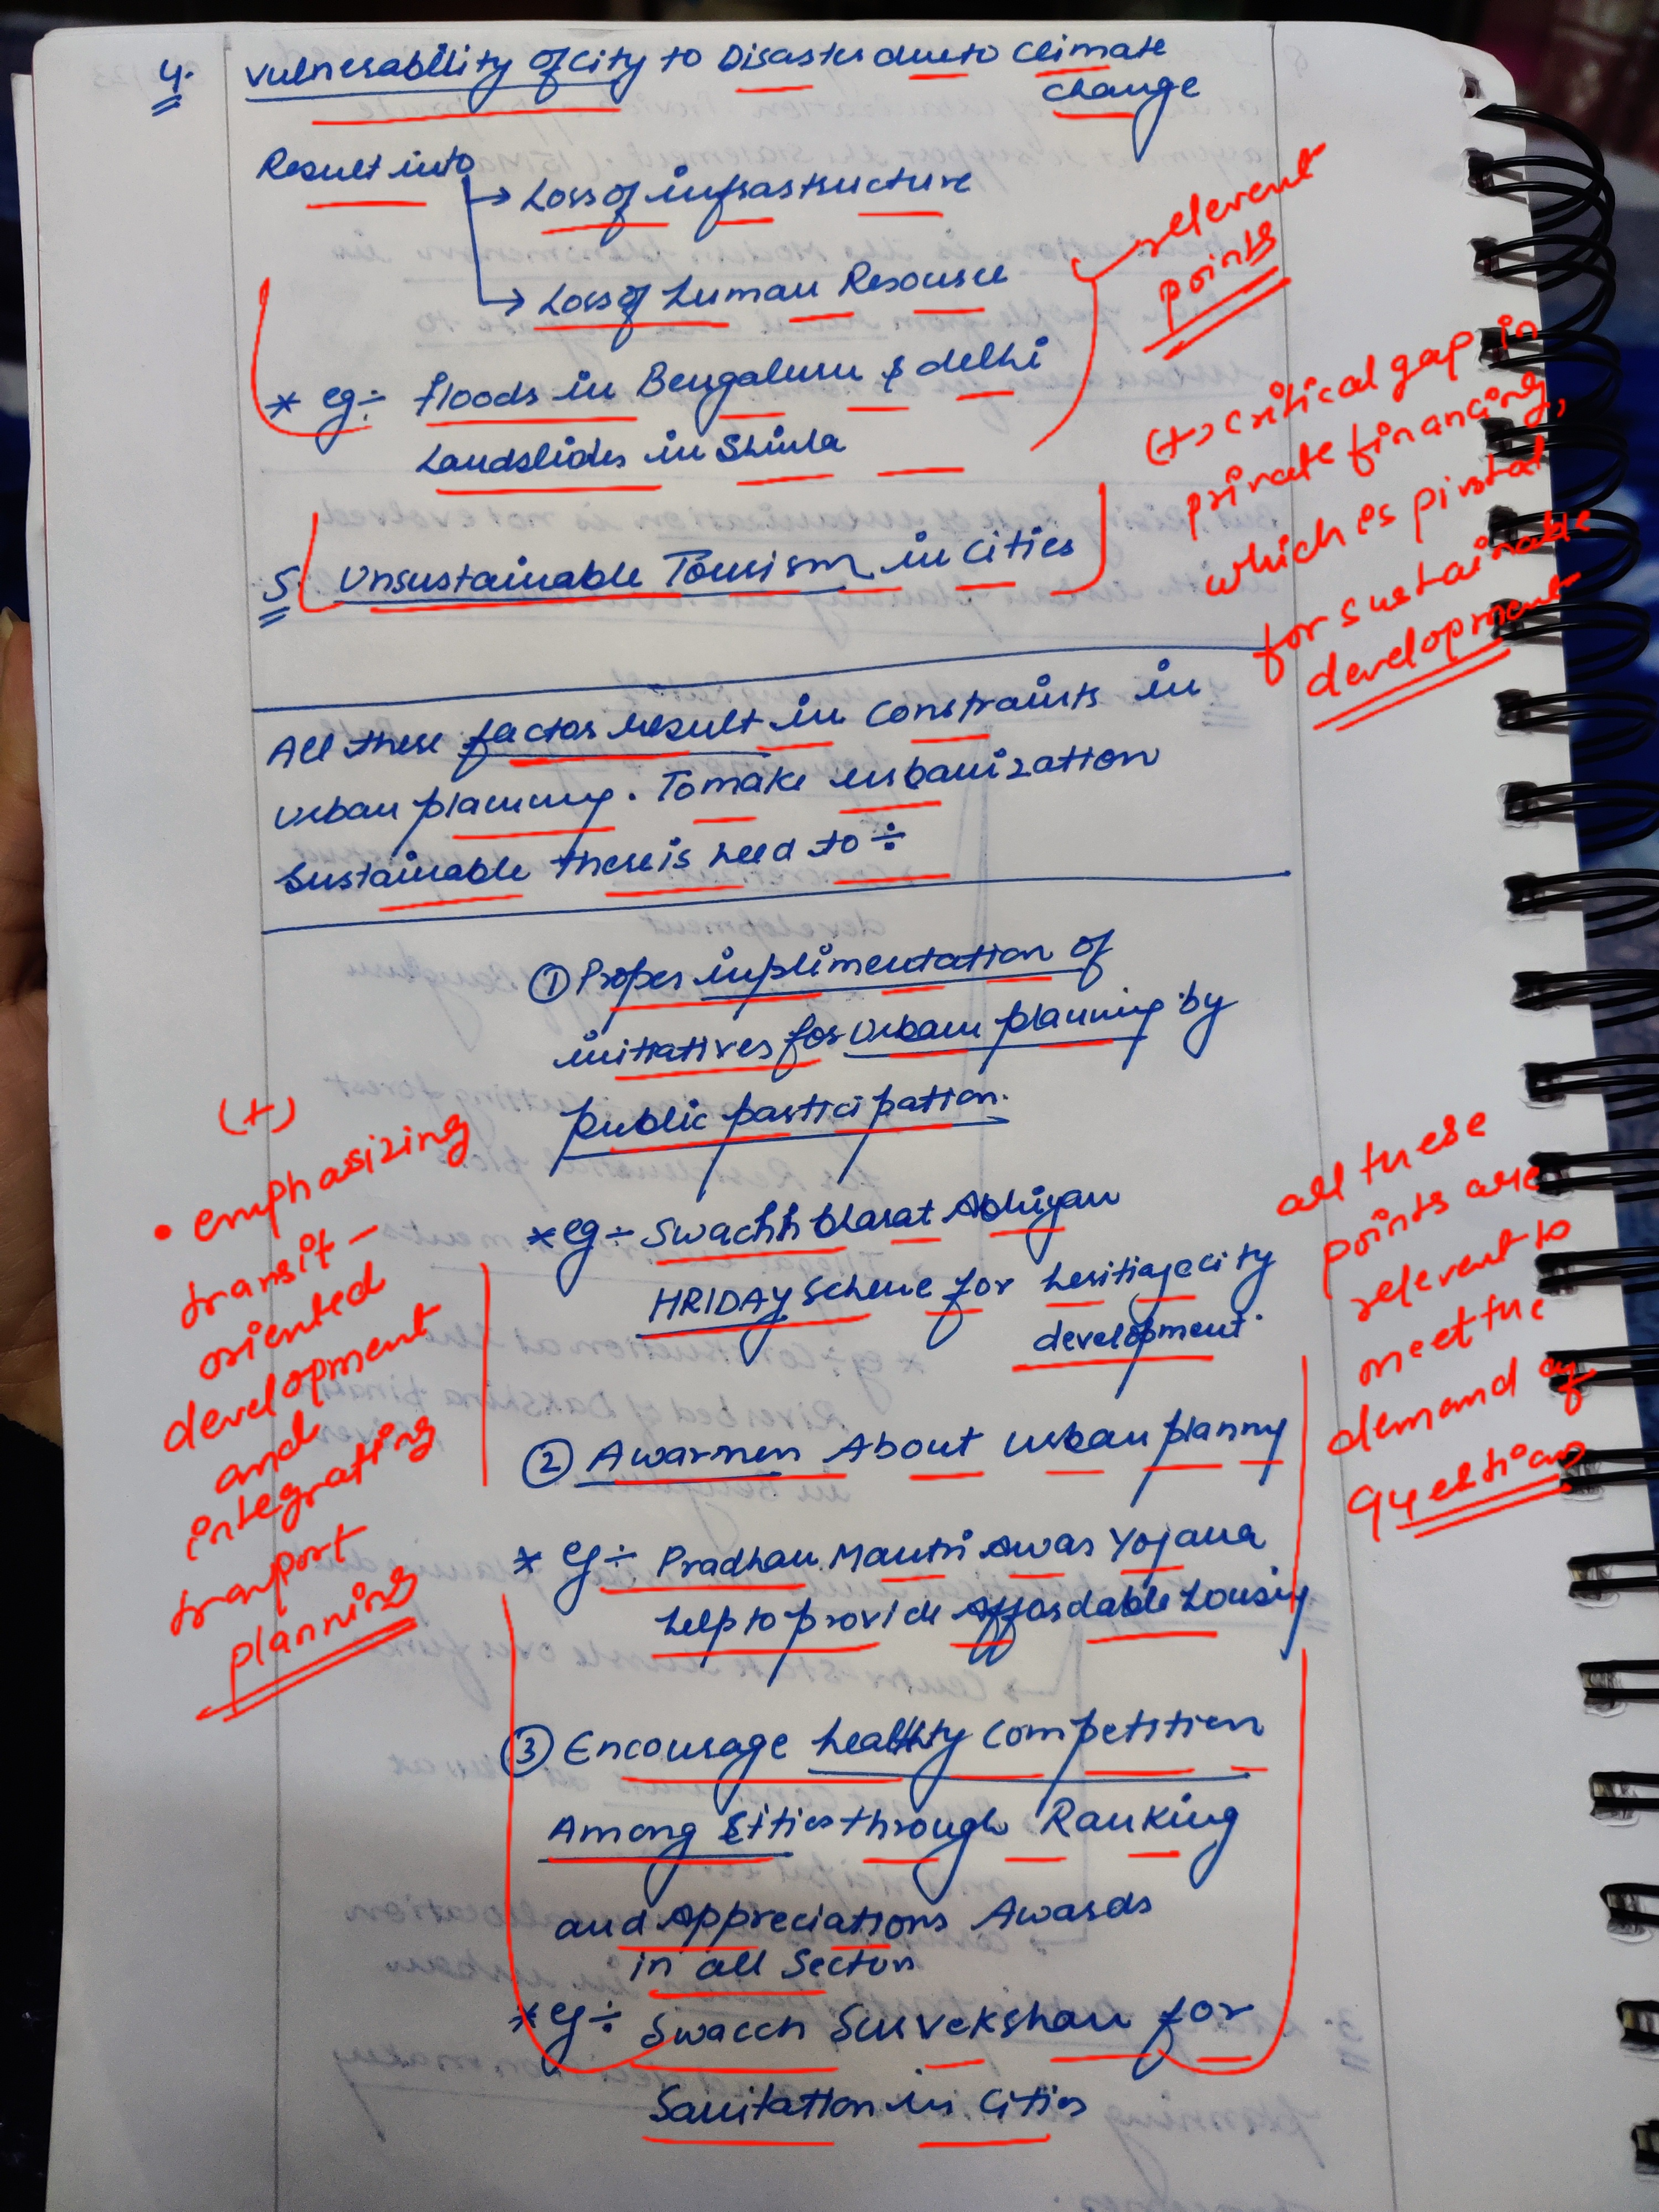 4. Vulnerability of city to Disaster due to Climate
change
Result into
→ Loss of infrastructure
→ Loss of human Resource
relevent
points
* eg ÷ floods in Bengaluru & delhi
Landslides in Shimla
(+) critical gap in
private financing,
which is pivotal
for sustainable
development
5. Unsustainable Tourism in cities
All these factor result in constraints in
Urban planning. To make urbanization
Sustainable there is need to ÷
① Proper implimentation of
initiatives for Urban planning by
public participation.
* eg ÷ Swachh bharat Abhiyan
HRIDAY scheme for heritage city
development.
(+)
• emphasizing
transit-
oriented
development
and
integrating
tranport
planning
all these
points are
relevent to
meet the
demand of
question
② Awarnen About urban planny
* eg ÷ Pradhan Mantri Awas Yojana
help to provide Affordable housing
③ Encourage healthy competition
Among cities through Ranking
and Appreciations Awards
in all Sectors
* eg ÷ Swacch Survekshan for
Sanitation in cities